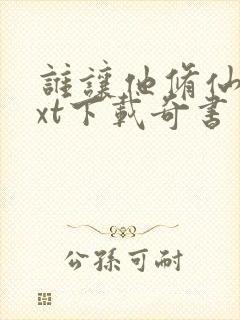 誰讓他脩仙
xt下載奇書
公孫可耐